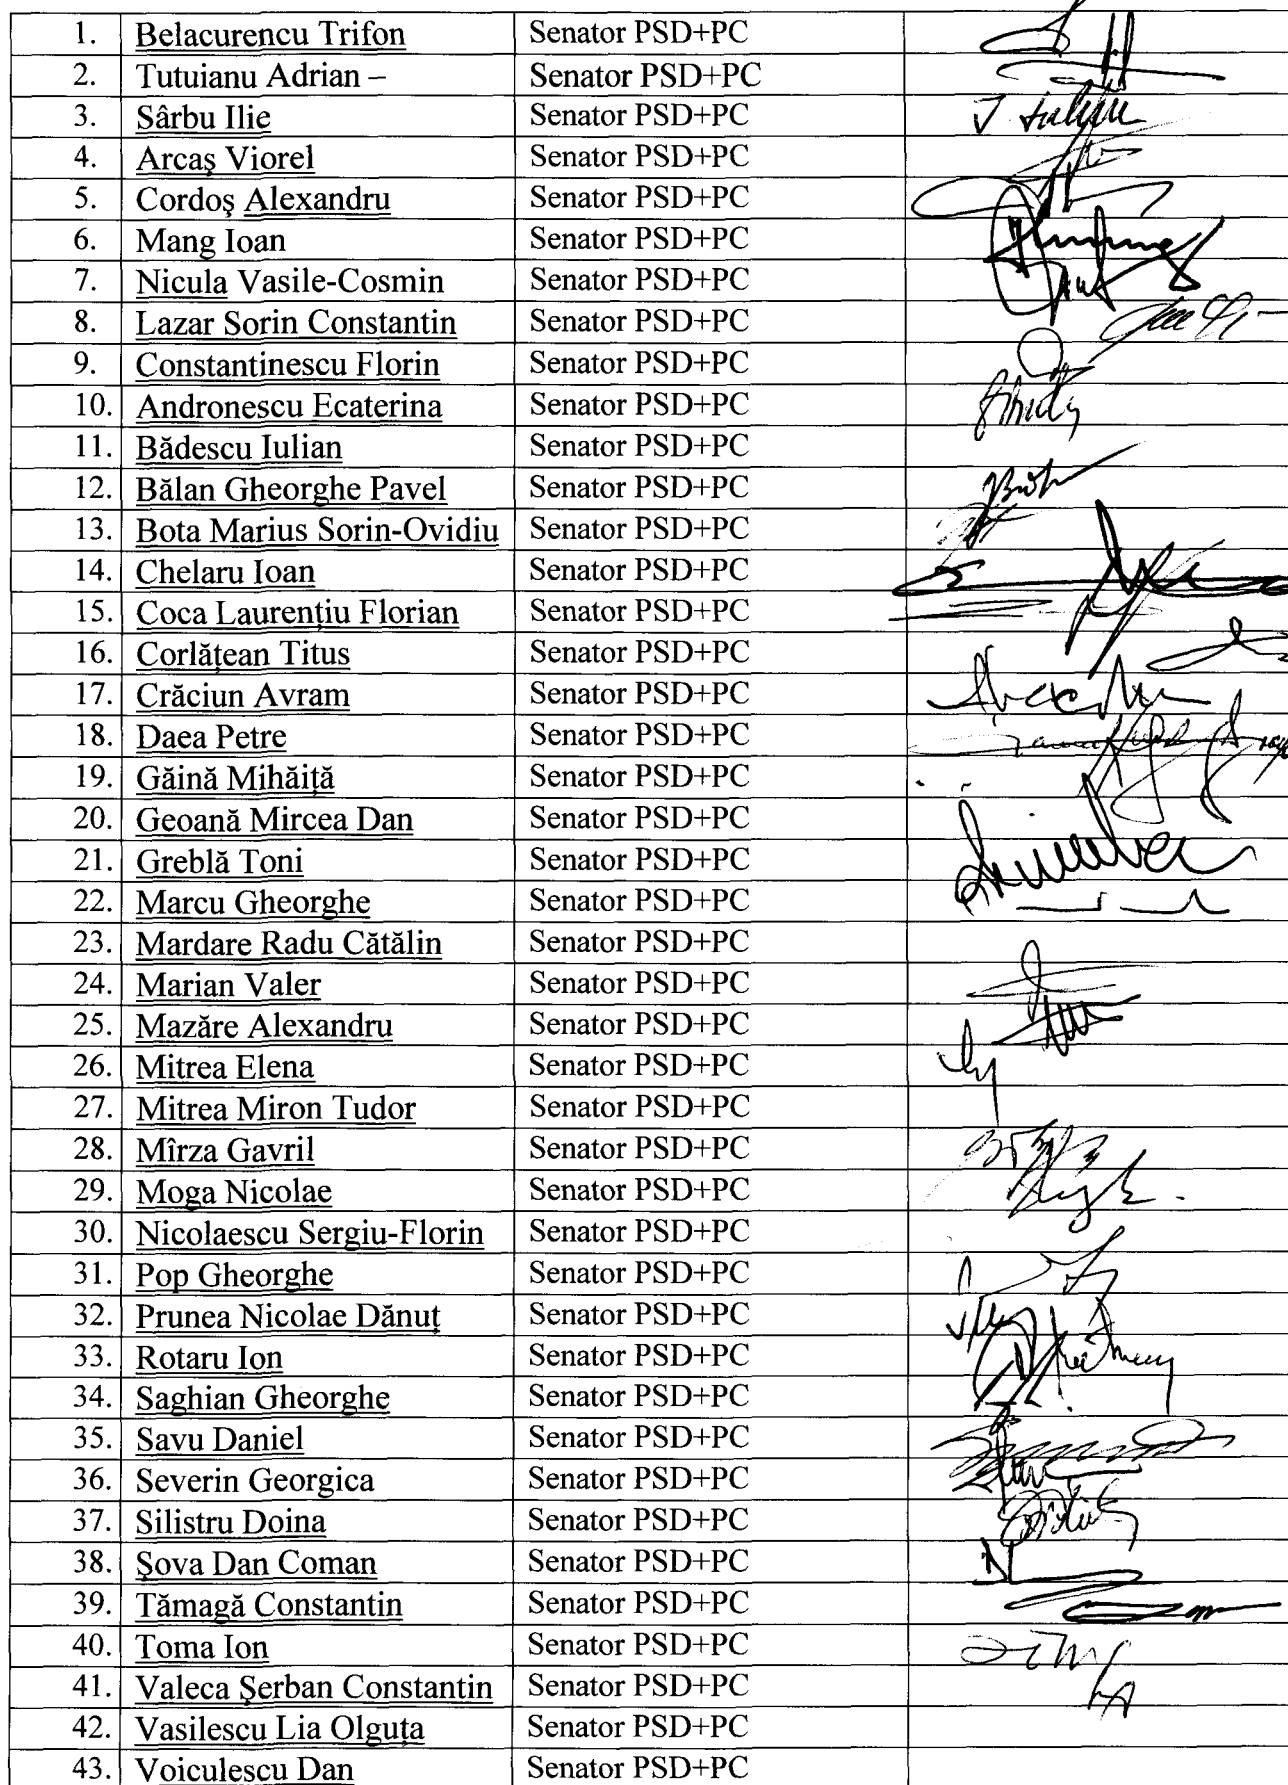 1. Belacurencu Trifon Senator PSD+PC
2. Tutuianu Adrian – Senator PSD+PC
3. Sârbu Ilie Senator PSD+PC
4. Arcaş Viorel Senator PSD+PC
5. Cordoş Alexandru Senator PSD+PC
6. Mang Ioan Senator PSD+PC
7. Nicula Vasile-Cosmin Senator PSD+PC
8. Lazar Sorin Constantin Senator PSD+PC
9. Constantinescu Florin Senator PSD+PC
10. Andronescu Ecaterina Senator PSD+PC
11. Bădescu Iulian Senator PSD+PC
12. Bălan Gheorghe Pavel Senator PSD+PC
13. Bota Marius Sorin-Ovidiu Senator PSD+PC
14. Chelaru Ioan Senator PSD+PC
15. Coca Laurenţiu Florian Senator PSD+PC
16. Corlăţean Titus Senator PSD+PC
17. Crăciun Avram Senator PSD+PC
18. Daea Petre Senator PSD+PC
19. Găină Mihăiţă Senator PSD+PC
20. Geoană Mircea Dan Senator PSD+PC
21. Greblă Toni Senator PSD+PC
22. Marcu Gheorghe Senator PSD+PC
23. Mardare Radu Cătălin Senator PSD+PC
24. Marian Valer Senator PSD+PC
25. Mazăre Alexandru Senator PSD+PC
26. Mitrea Elena Senator PSD+PC
27. Mitrea Miron Tudor Senator PSD+PC
28. Mîrza Gavril Senator PSD+PC
29. Moga Nicolae Senator PSD+PC
30. Nicolaescu Sergiu-Florin Senator PSD+PC
31. Pop Gheorghe Senator PSD+PC
32. Prunea Nicolae Dănuţ Senator PSD+PC
33. Rotaru Ion Senator PSD+PC
34. Saghian Gheorghe Senator PSD+PC
35. Savu Daniel Senator PSD+PC
36. Severin Georgica Senator PSD+PC
37. Silistru Doina Senator PSD+PC
38. Şova Dan Coman Senator PSD+PC
39. Tămagă Constantin Senator PSD+PC
40. Toma Ion Senator PSD+PC
41. Valeca Şerban Constantin Senator PSD+PC
42. Vasilescu Lia Olguţa Senator PSD+PC
43. Voiculescu Dan Senator PSD+PC